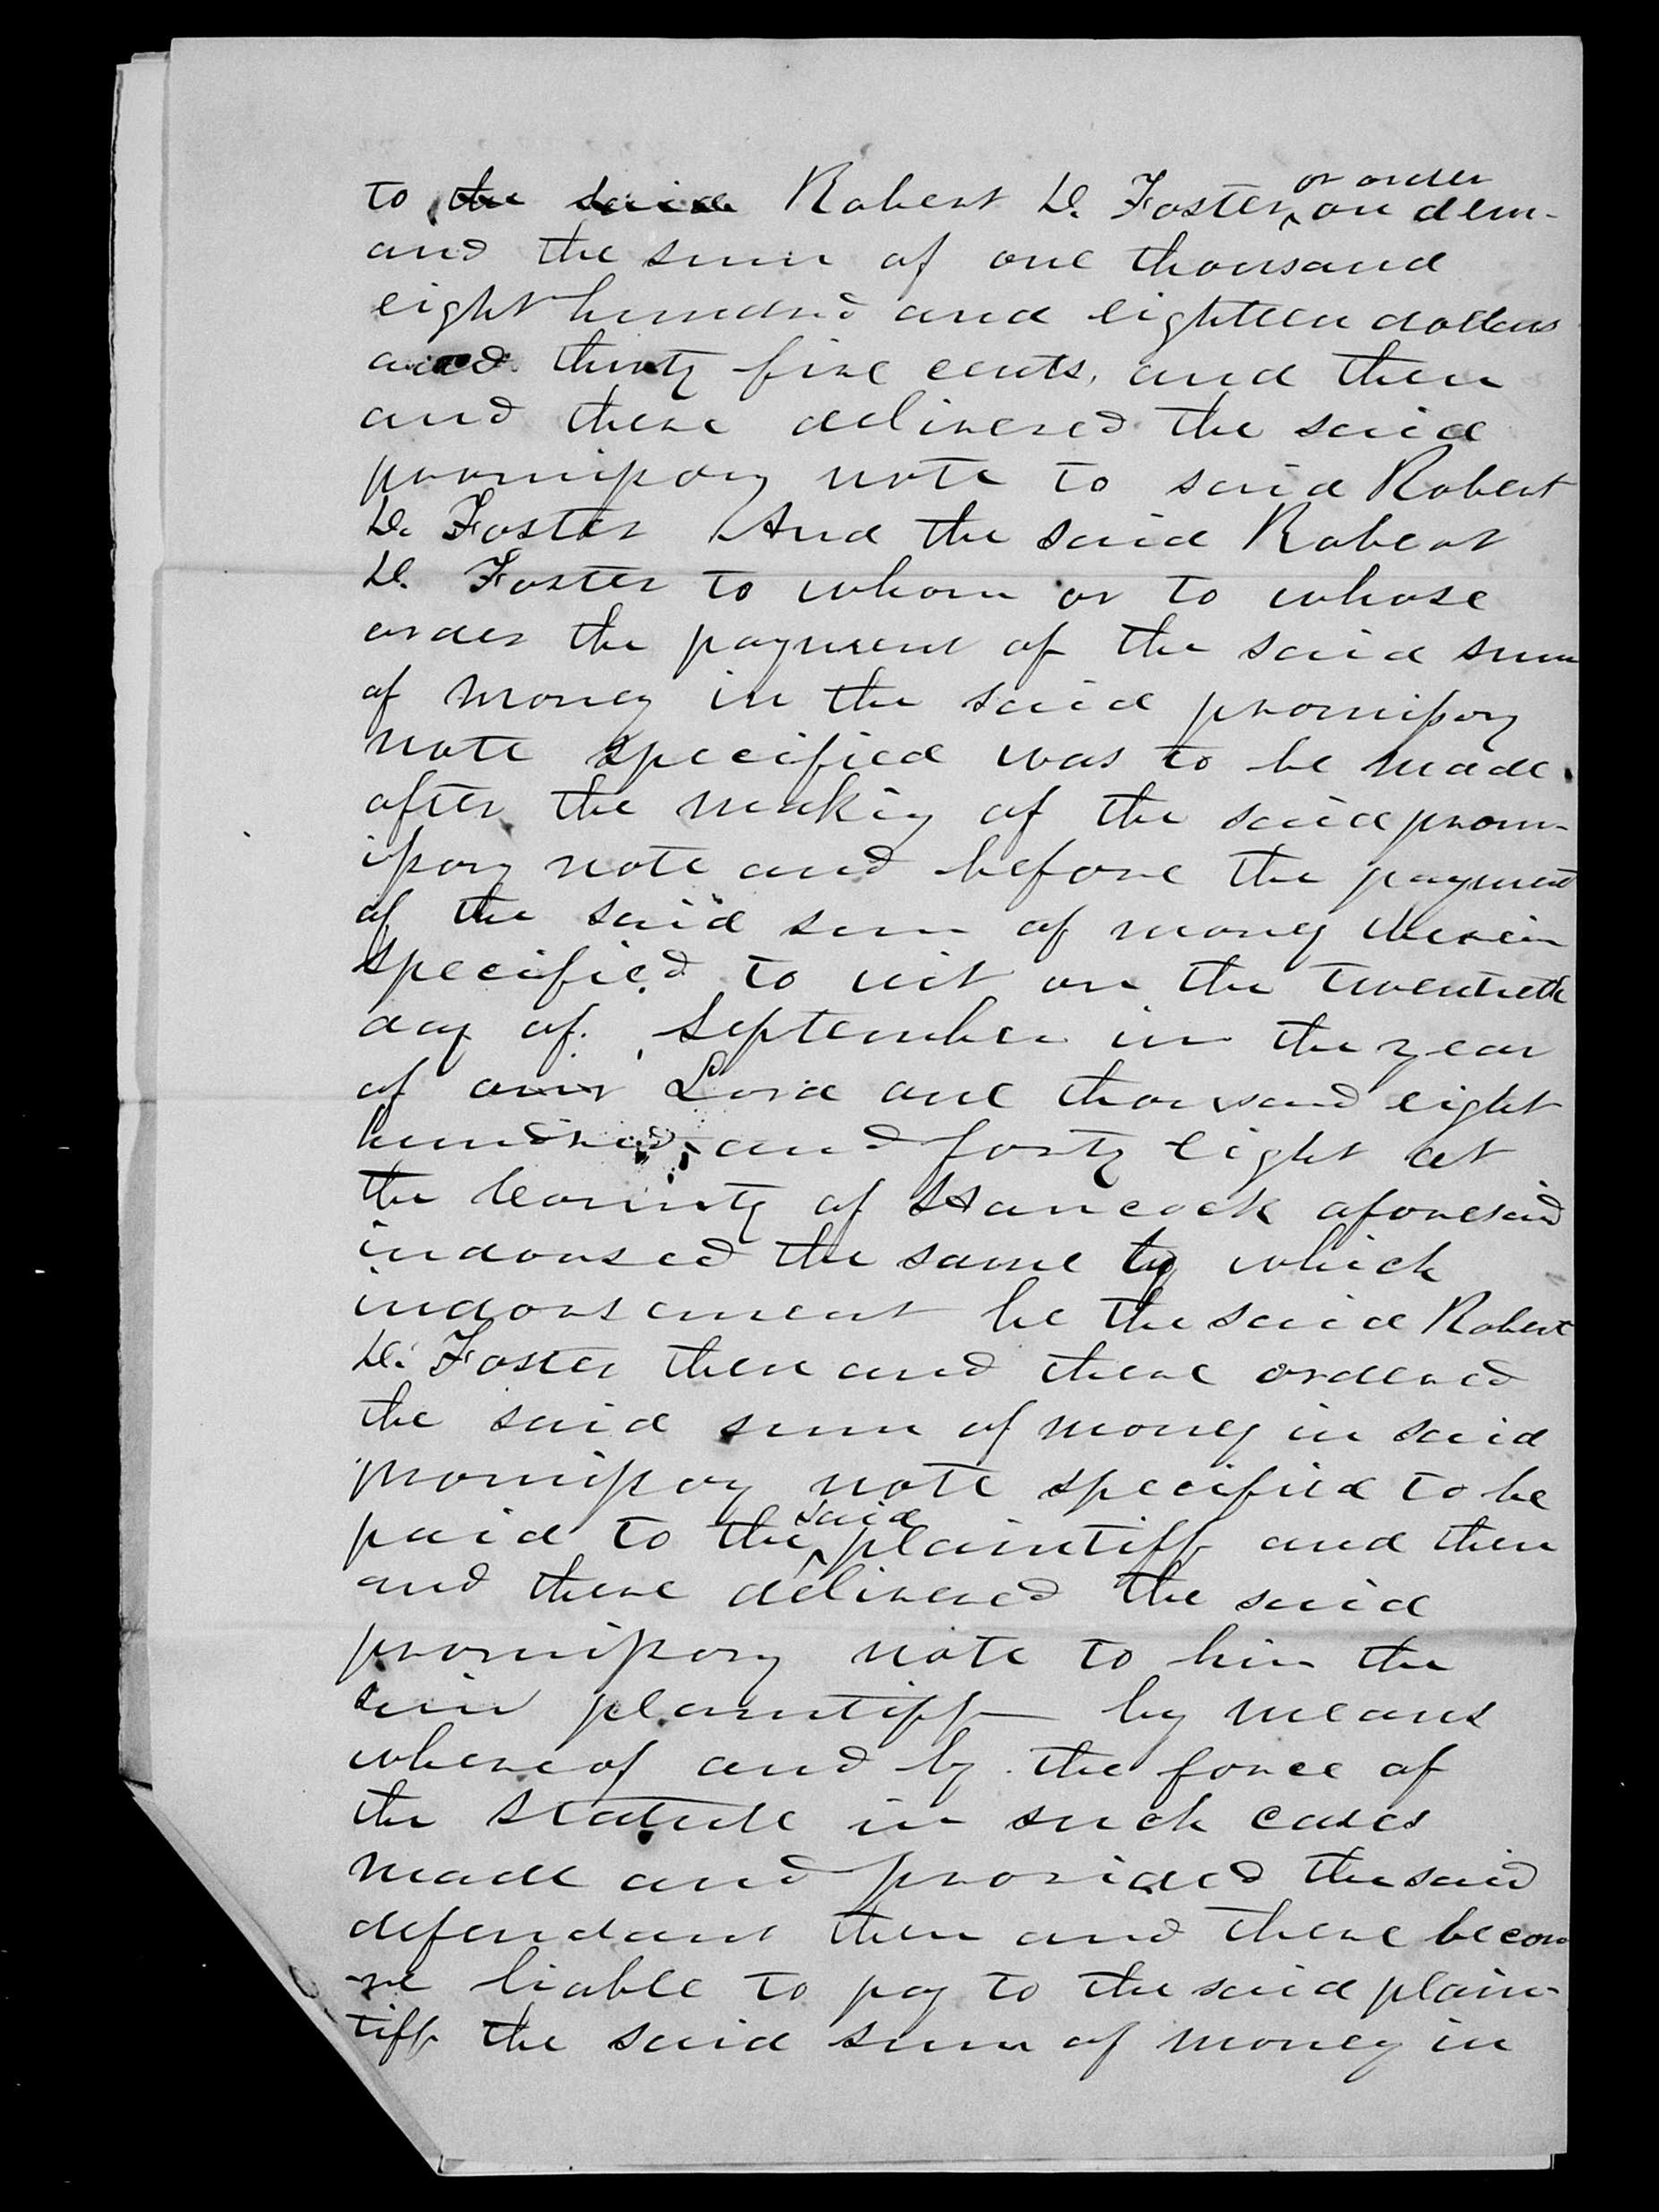 to the said Robert D. Foster or order on dem-
and the sum of one thousand
eight hundred and eighteen dollars
and thirty five cents, and then
and there delivered the said
promissory note to said Robert
D. Foster And the said Robert
D. Foster to whom or to whose
order the payment of the said sum
of money in the said promissory
note specified was to be made
after the making of the said prom-
issory note and before the payment
of the said sum of money therein
specified to wit on the twentieth
day of September in the year
of our Lord one thousand eight
hundred and forty eight at
the County of Hancock aforesaid
indorsed the same by which
indorsement he the said Robert
D. Foster then and there ordered
the said sum of money in said
promissory note specified to be
paid to the said plaintiff and then
and there delivered the said
promissory note to him the
said plaintiff by means
whereof and by the force of
the Statute in such cases
made and provided the said
defendant then and there becom
-me liable to pay to the said plain-
tiff the said sum of money in